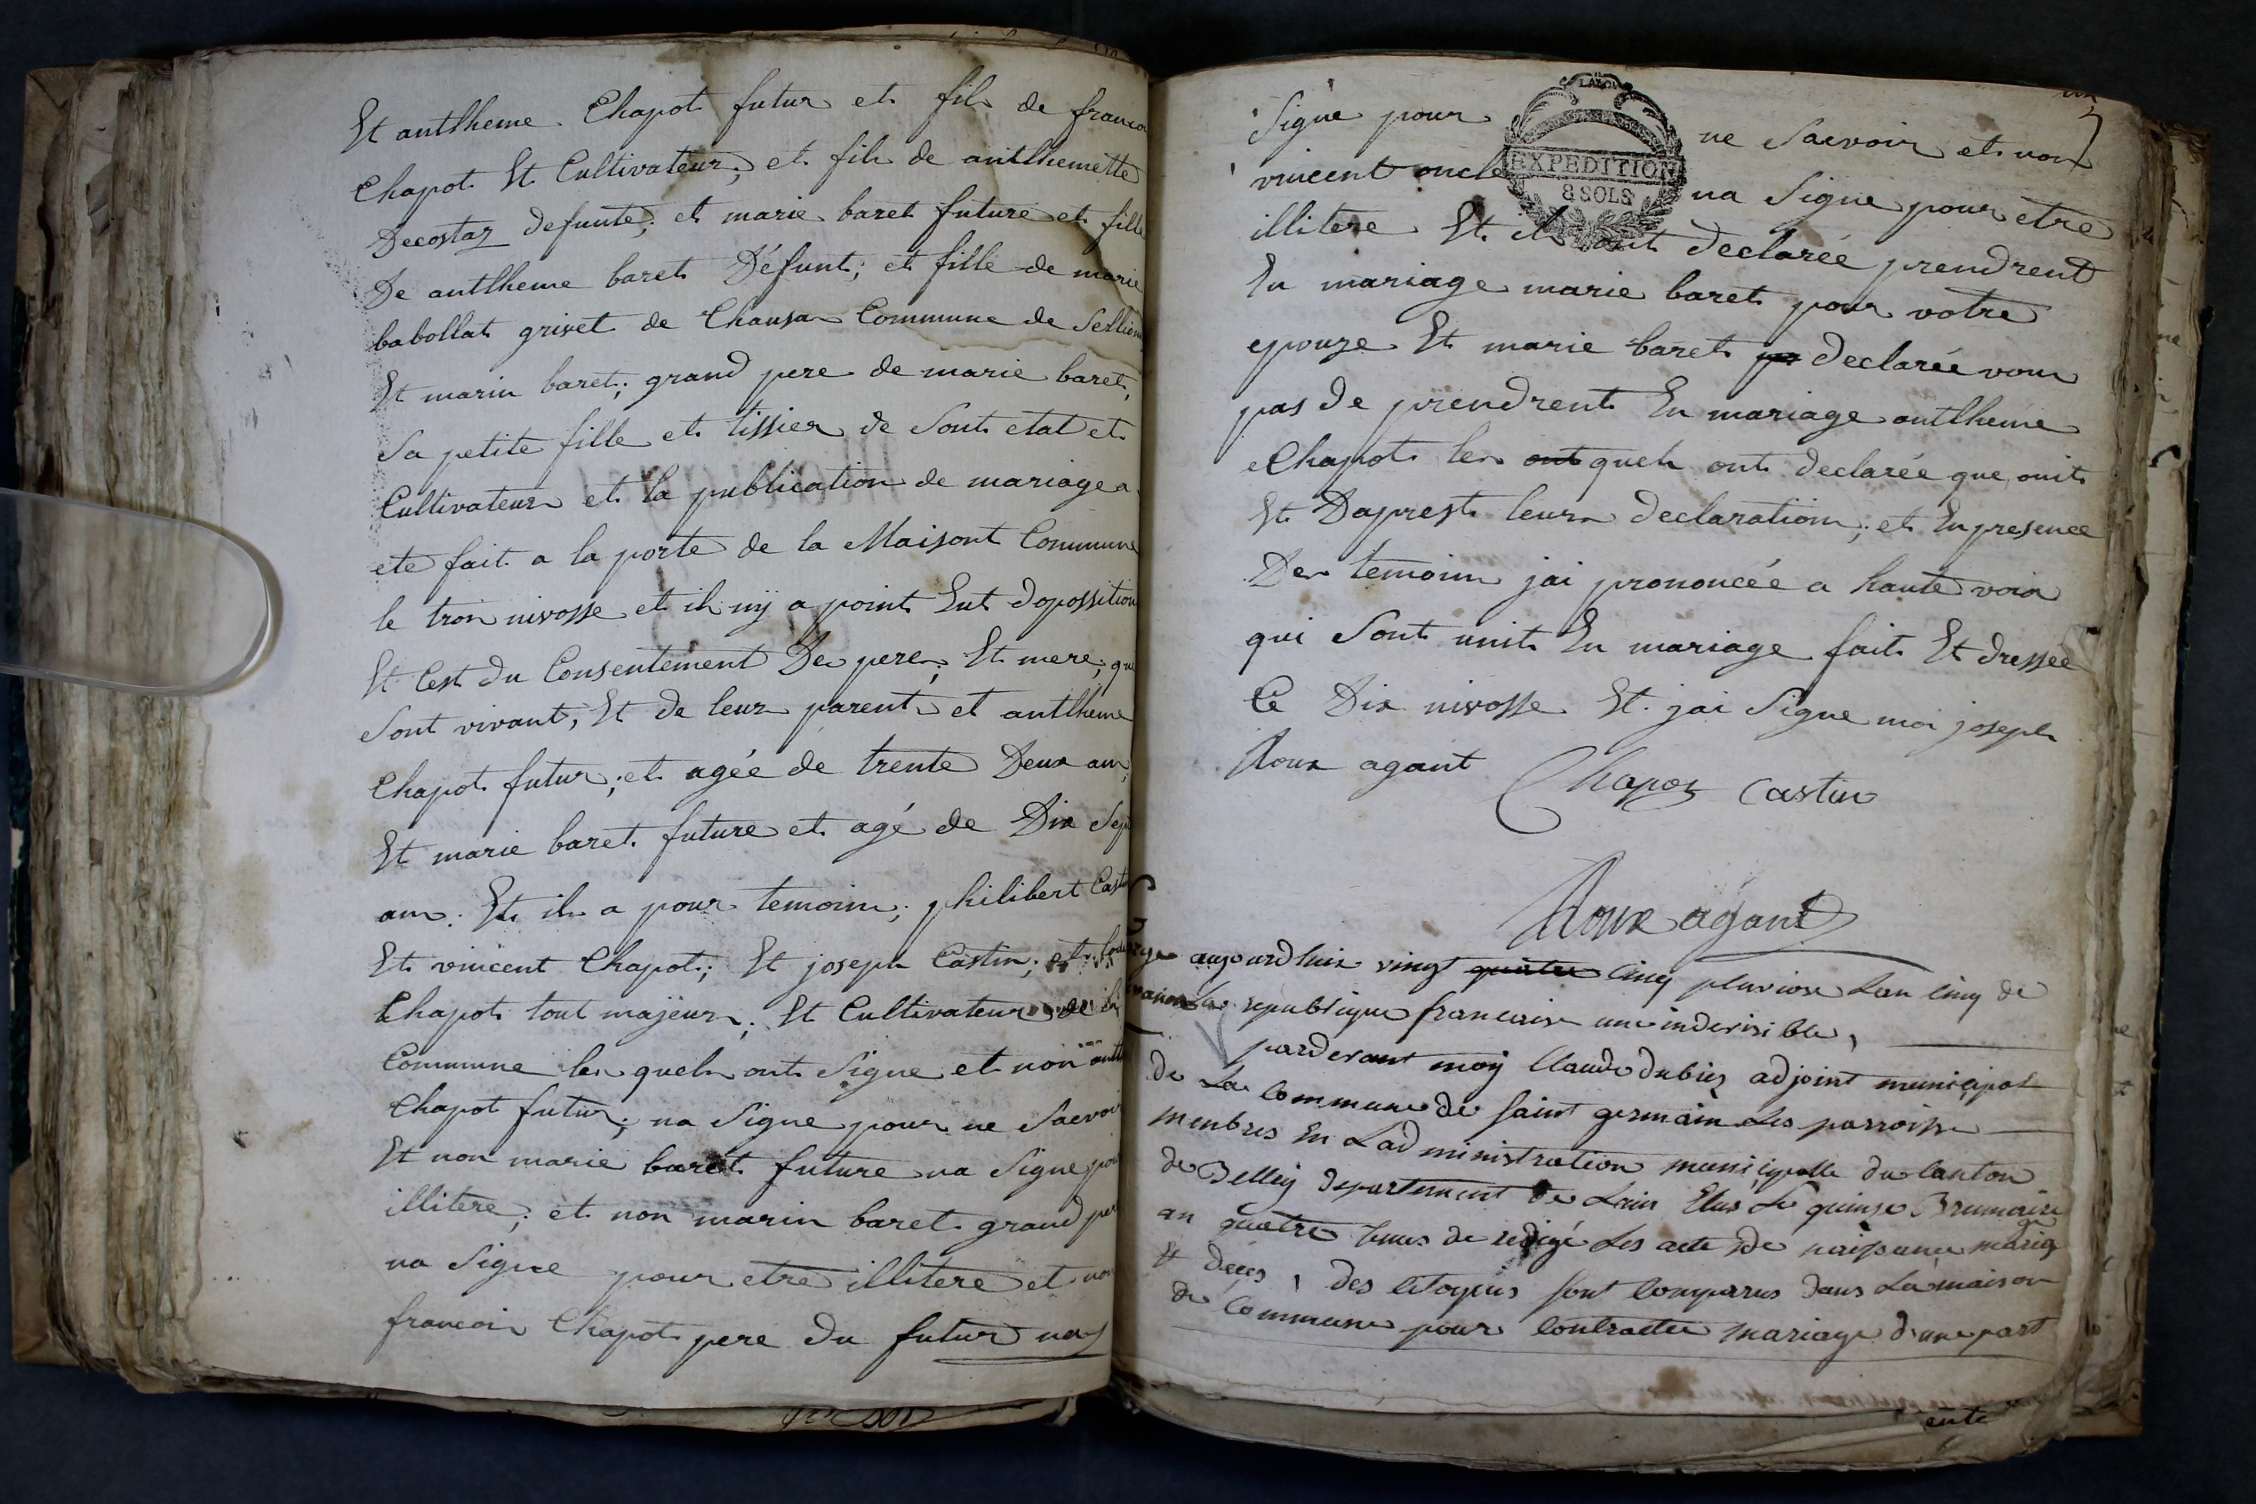 Et anthheme Chapot futur et fils de francoi
Chapot Et Cultivateur; et fils de anthhemette
Decostaz defunte; et marie baret future et fille
De anthheme baret Défunt; et fille de marie
babollat grivet de Chausa Commune de
Et marin baret; grand pere de marie baret,
Sa petite fille et tissier de Sont etat et
Cultivateur et la publication de mariage a
ete fait a la porte de la Maisont Commune
le troi nivosse et il ny a point Eut dopossition
Et Cest du Consentement De pere; Et mere; qui
Sont vivant, Et de leur parent et anthheme
Chapot futur; et agée de trente Deux an,
Et marie baret future et agé de Dix Sept
an. Et il a pour temoin; philibert Castin
Et vincent Chapot; Et joseph Castin; et
Chapot tout majeur; Et Cultivateur de
Commune les quels ont Signe et non anth
Chapot futur; na Signe pour ne Saevoir
Et non marie baret future na Signe pour
illitere; et non marin baret grand pere
na Signe pour etre illitere et non
francoi Chapot pere du futur na
Signe pour ne Saevoir et non
LALOI
EXPEDITION
8 SOLS
vincent oncle na Signe pour etre
illitere Et ils ont declarée prendrent
En mariage marie baret pour votre
epouze Et marie baret declarée vou
pas de prendrent En mariage anthheme
Chapot les ont quels ont declarée que ouit
Et Daprest leur declaration; et En presence
De temoin jai prononcée a haute voix
qui Sont unit En mariage fait Et dressée
Ce Dix nivosse Et jai Signe moi joseph
Roux agant
Chapot Castin
Roux agant
aujourdhuix vingt quatre cinq pluviose Lan cinq de
La republique francaise une indivisible,
pardevant moy Claude dubiez adjoint municipal
de La Commune de saint germain Les parroisse
membres En Ladministration municipalle du Canton
de Belley departement de Lain Elus Le quinse Brumaire
an quatre de redigé Les acte de naissance mariage
et deces, des Citoyens sont Comparus dans La maison
de Commune pour Contracter mariage d'une part